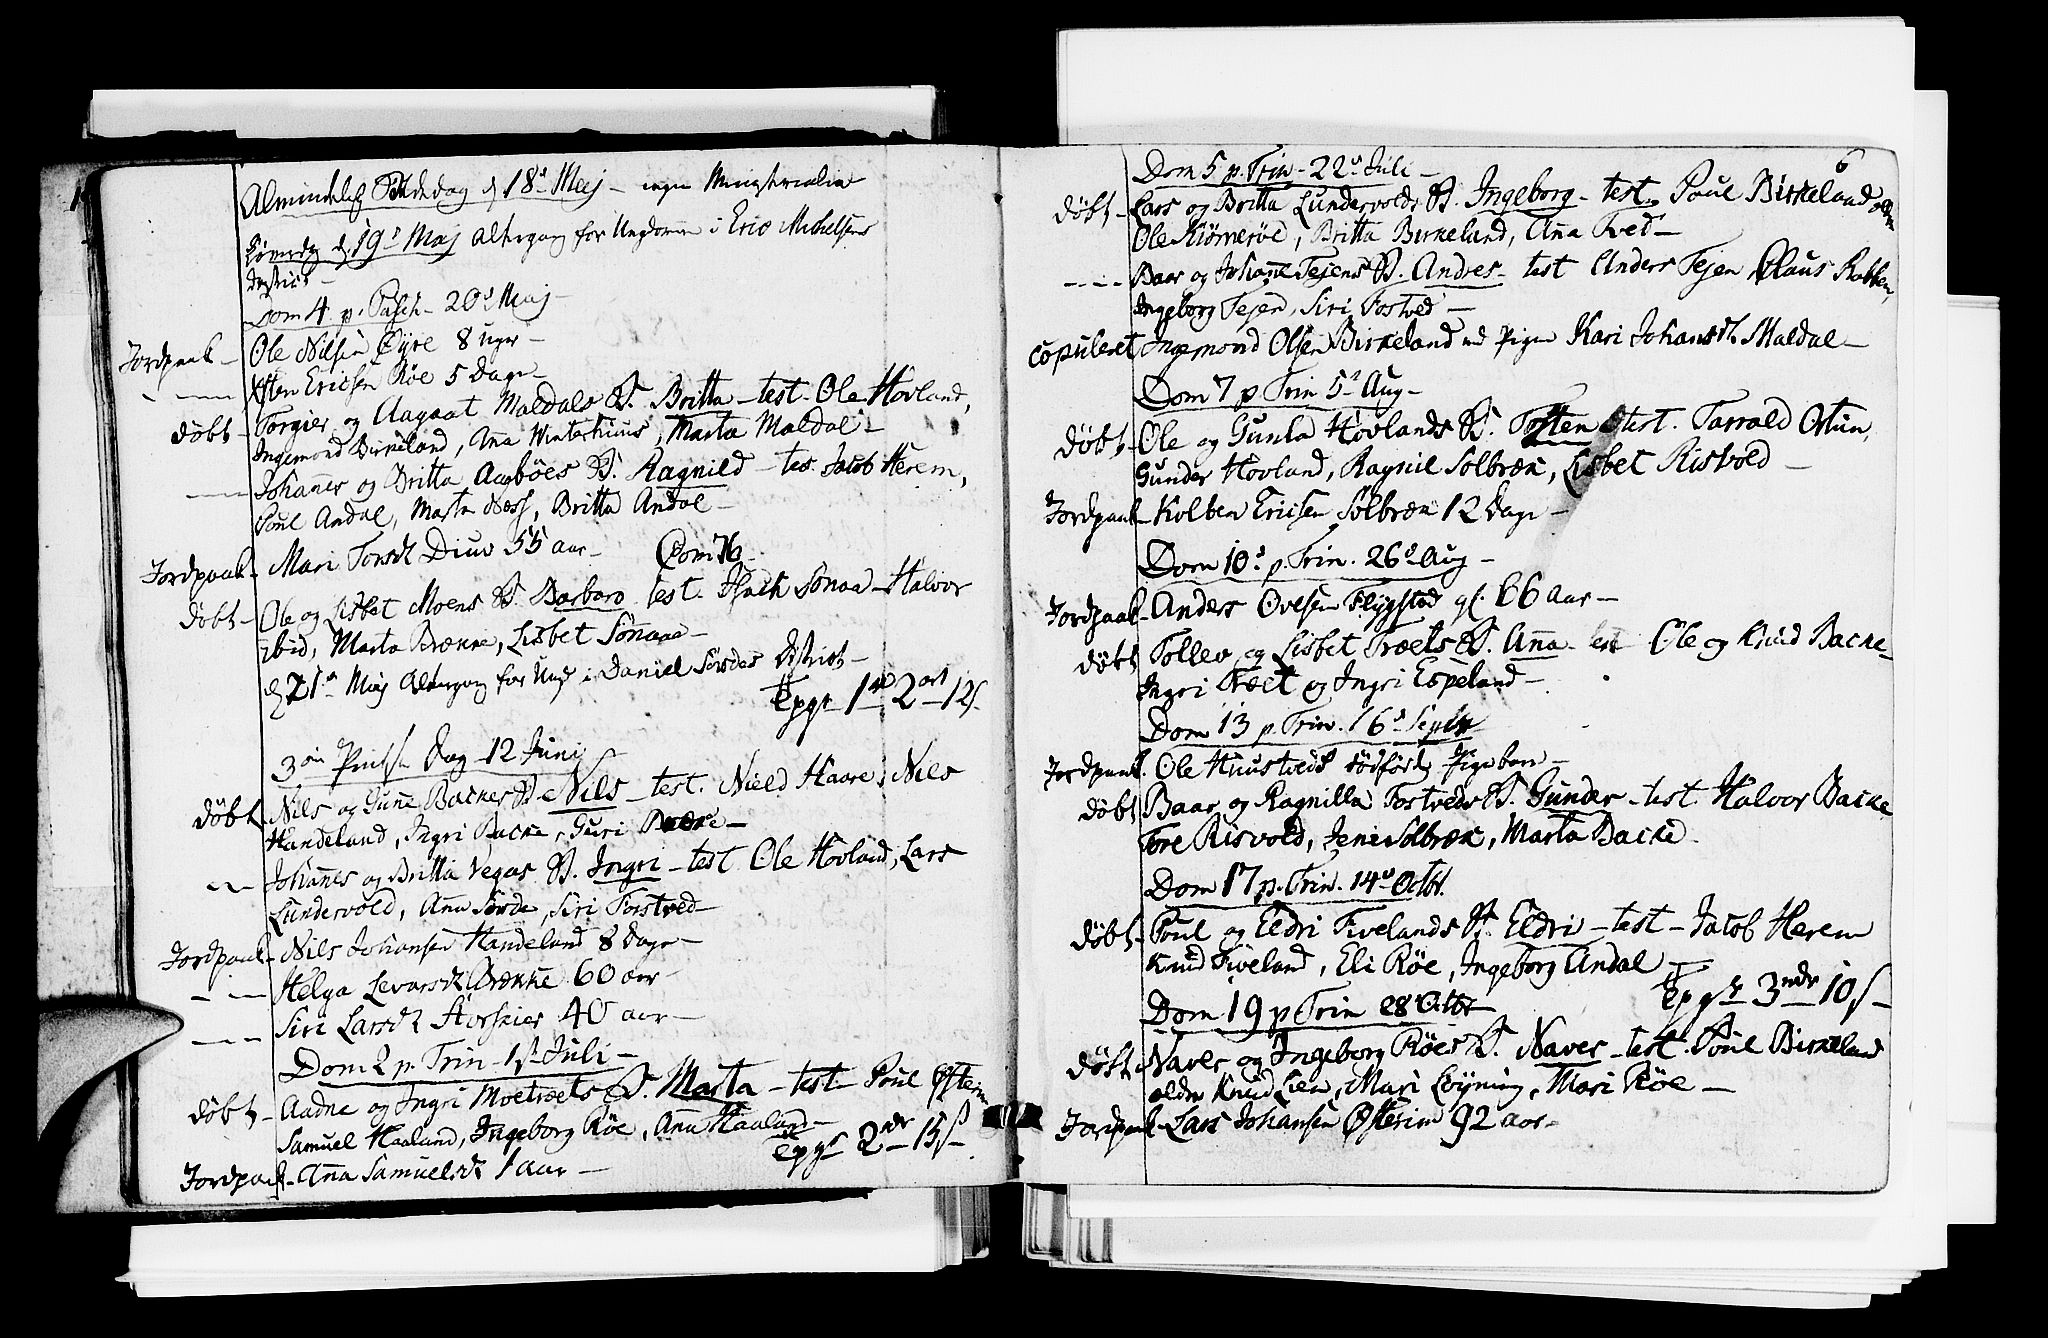 Almindelig Bededag d 18d Maj - ingen Ministerialia
Løverdag d 19d Maj Altergang for Ungdommen i Eric Mickelsens
District -
Dom 4 p. Pasch - 20d Maj -
Jordpaak - Ole Nilsen Øyre 8 uger -
- - - Østen Ericsen Røe 5 Dage -
døbt - Torgier og Aagaat Maldals B. Britta - test. Ole Hovland,
Ingemond Birkeland, Aña Winterhuus, Marta Maldal -
- - - Johañes og Britta Aagbøes B. Ragnild - tes. Jacob Herem,
Poul Andal, Marta Næss, Britta Andal -
Jordpaak - Mari Torsd. 55 aar - Com 76 -
døbt - Ole og Lisbet Moens B. Barbara test. Isach Sønaa - Halvor
ibid, Marta Brække, Lisbet Sønaaa -
d 21d Maj Altergang for Ungd i Daniel Sørdes District -
Epgr 1 2 ort 12 s.
3die Pintse Dag 12 Juni
døbt Nils og Guñe Backes B. Nils - test. Nield Haare, Nils
Handeland, Ingri Backe, Guri -
- - Johañes og Britta Vegas B. Ingri - test Ole Hovland, Lars
Lundervold, Aña Sørde, Siri Forstved -
Jordpaak - Nils Johansen Handeland 8 Dage -
- - - Helga Levarsd. Brække 60 aar
- - - Siri Larsd. 40 aar -
Dom 2 p. Trin - 1st Juli -
døbt - Aadne og Ingri Moetræets B. Marta - test Poul Østerim
Samuel Haaland, Ingeborg Røe, Aña Haaland -
Epgr 2 mdr 15 s
Jordpaak - Aña Samuelsd. 1 aar -
6
Dom 5 p. Trin - 22d Juli -
døbt - Lars og Britta Lundervolds B. Ingeborg - test. Poul Birkeland ældre
Ole Kiømerøe, Britta Birkeland, Aña Tved -
- - - Baar og Johañe Tejens B. Andres - test Anders Tejen Claus Rabben,
Ingeborg Tejen, Siri Fostved -
copuleret Ingemond Olsen Birkeland med Pigen Kari Johansd. Maldal -
Dom 7 p Trin 5d Aug -
døbt - Ole og Gunla Hovlands B. Tosten test. Tarrald Ortun,
Gunder Hovland, Ragnil Solbræk, Lisbet Risvold -
Jordpaak - Kolben Ericsen Solbræk 12 Dage -
Dom 10d p. Trin. 26d Aug -
Jordpaak - Anders Ovesen Flygstad gl. 66 aar -
døbt Tollev og Lisbet Træets B. Aña test Ole og Knud Backe -
Ingri Træet og Ingri Espeland -
Dom 13 p. Trin. 16d Septbr
Jordpaak. Ole Knustveds dødfødte Pigebarn -
døbt Baar og Ragnilla Fostveds B. Gunder - test Halvor Backe
Tore Risvold, Jene Solbræk, Marta Backe
Dom 17 p. Trin. 14d Octbr.
døbt - Poul og Eldri Fivelands B. Eldri - test - Jacob Herem
Knud Fiveland, Eli Røe, Ingeborg Andal -
Epgr 3 mdr 10 s -
Dom 19 p Trin 28 Octbr
døbt Naver og Ingeborg Røes B. Naver - test. Poul Birkeland
ældre Knud Lien, Mari Løyning, Mari Røe -
Jordpaak - Lars Johansen Østerim 92 aar -